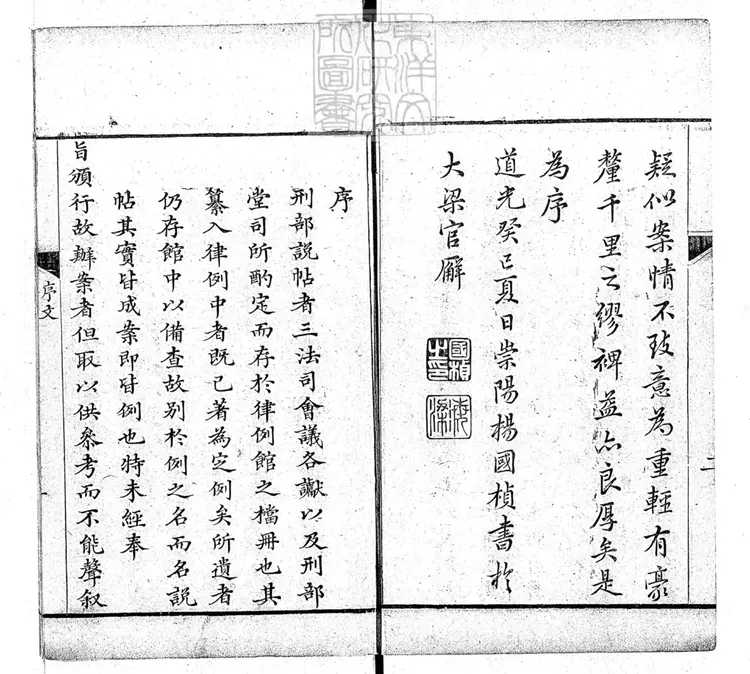 疑似案情不致意為重輕有豪
釐千里之繆裨益亦良厚矣是
為序
道光癸巳夏日崇陽楊國楨書於
大梁官廨
國楨之印
海梁
二
序
刑部說帖者三法司會議各讞以及刑部
堂司所酌定而存於律例館之檔冊也其
纂入律例中者既已著為定例矣所遺者
仍存館中以備查故別於例之名而名說
帖其實皆成案即皆例也特未經奉
旨頒行故辦案者但取以供參考而不能聲叙
序文
一
東洋文
化研究
所圖書